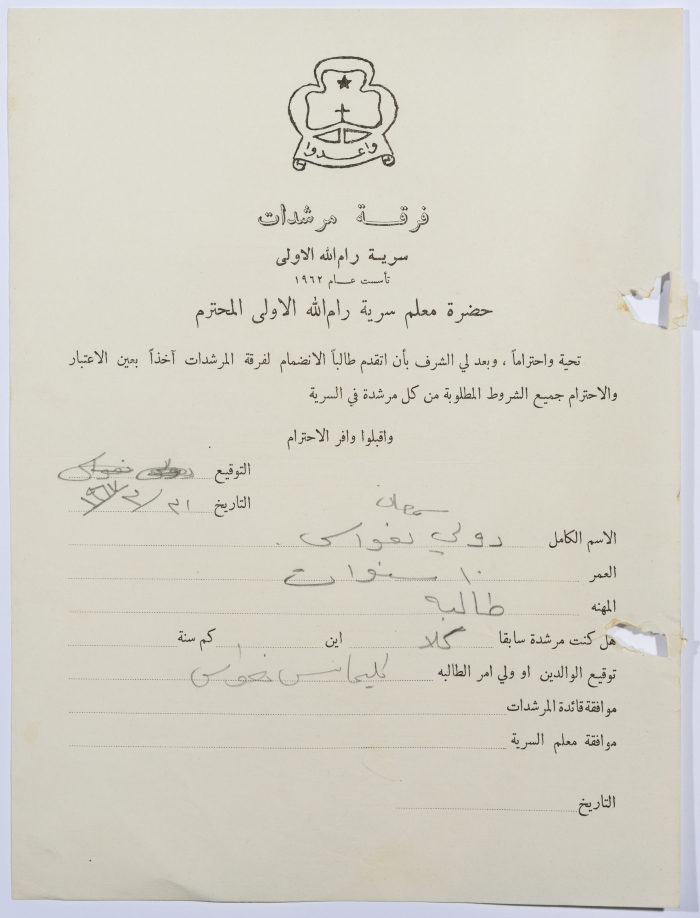 واعدوا
فرقة مرشدات
سرية رام الله الاولى
تأسست عام ١٩٦٢
حضرة معلم سرية رام الله الاولى المحترم
تحية واحتراماً ، وبعد لي الشرف بأن اتقدم طالباً الانضمام لفرقة المرشدات آخذاً بعين الاعتبار
والاحترام جميع الشروط المطلوبة من كل مرشدة في السرية
واقبلوا وافر الاحترام
التوقيع
التاريخ
سمعان
الاسم الكامل دولي نغواس
العمر ١٠ سنوات
المهنه طالبه
هل كنت مرشدة سابقا كلا اين كم سنة
توقيع الوالدين او ولي امر الطالبه نغواس
موافقة قائدة المرشدات
موافقة معلم السرية
التاريخ